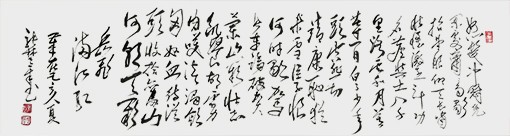 怒髮冲冠凭
栏处潇潇雨歇
抬望眼仰天长啸
壮怀激烈三十功
名尘与土八千
里路云和月莫等
闲白了少年
头空悲切
靖康耻犹
未雪臣子恨
何时灭驾
长车踏破贺
兰山缺壮志
饥餐胡虏肉
笑谈渴饮
匈奴血待從
头收拾舊山
河朝天阙
岳飛
满江红